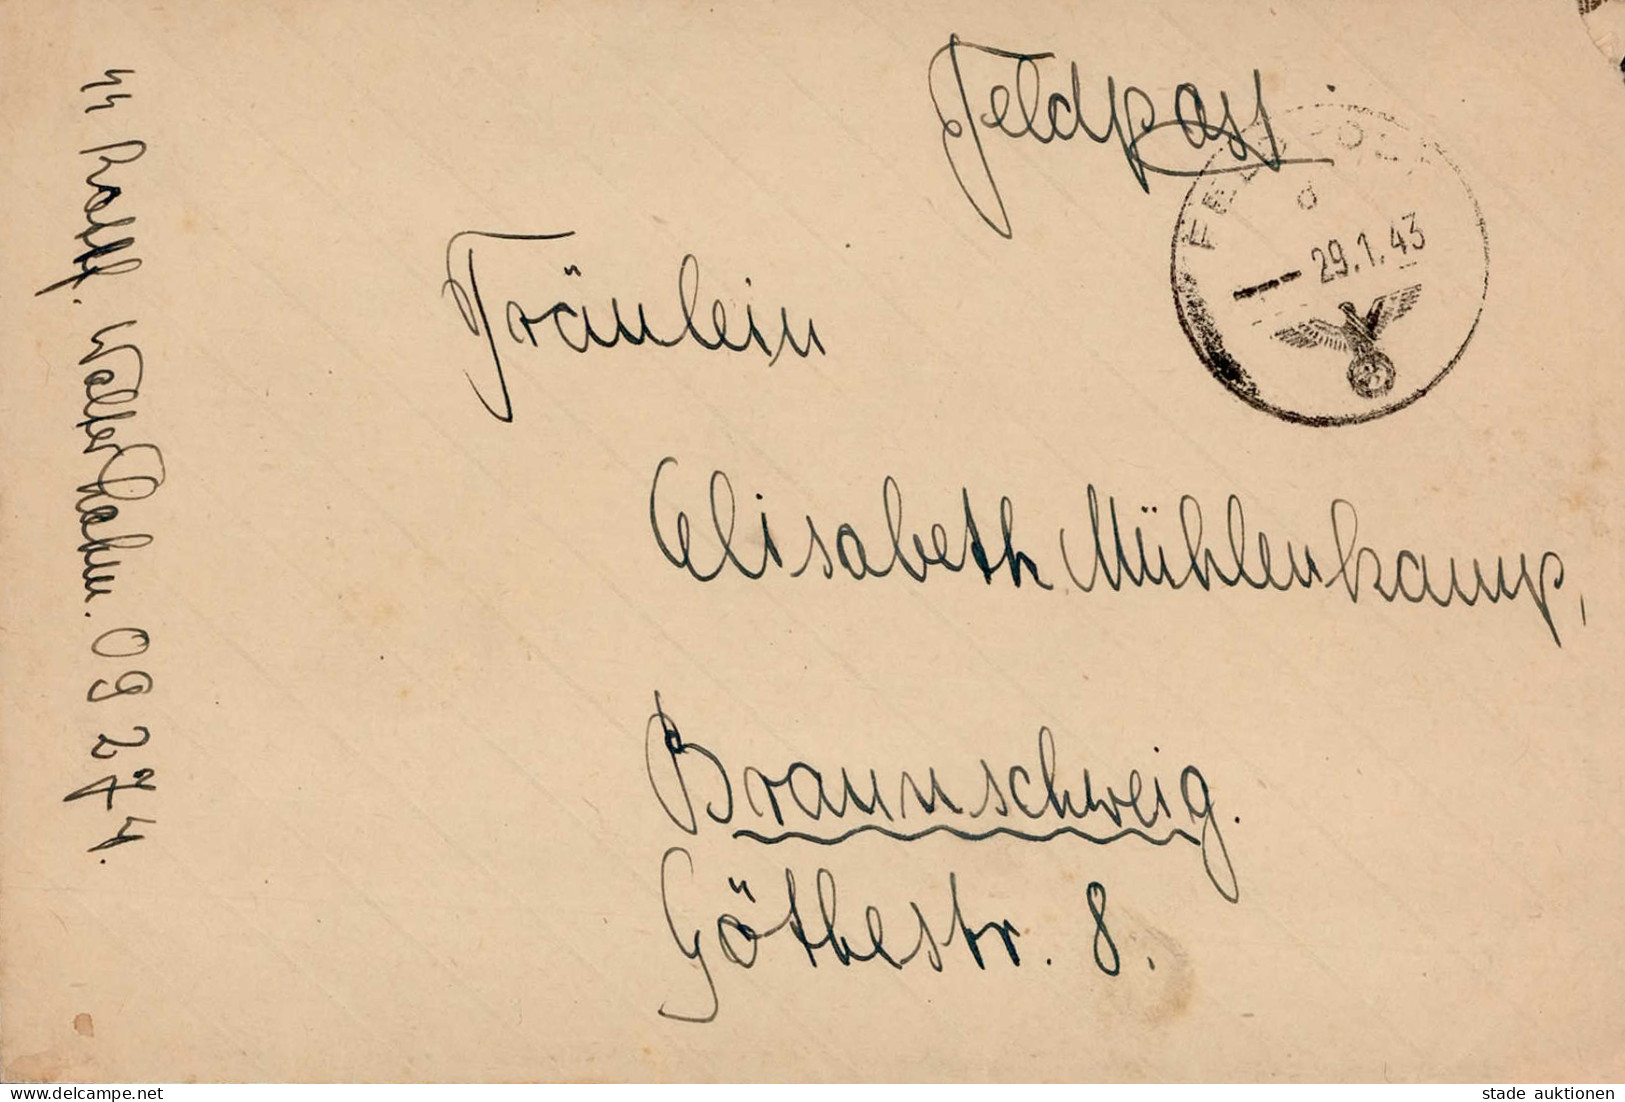 Feldpost
FELDPOST
d
29.1.43
Fräulein
Elisabeth Mühlenkamp,
Braunschweig.
Göthestr. 8.
ϟϟ Rottf. Walter Hahn. 09274.
delcampe.net
stade auktionen